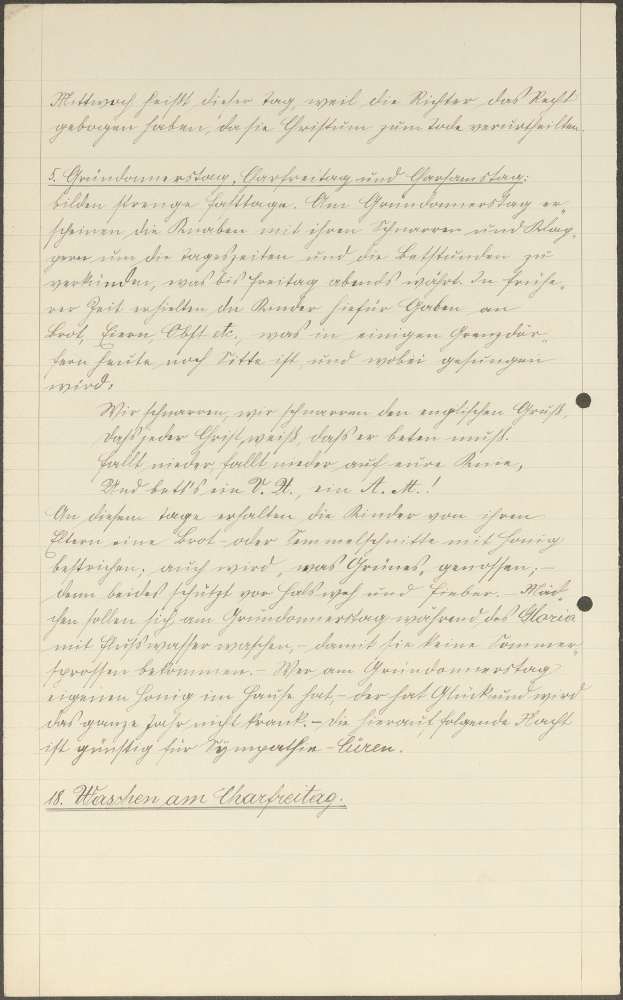 Mittwoch heißt dieser Tag, weil die Richter das Recht
gebogen haben, da sie Christum zum Tode verurtheilten.
5. Gründonnerstag, Carfreitag und Charsamstag:
bilden strenge Fasttage. Am Gründonnerstag er-
scheinen die Knaben mit ihren Schnarren und Klap-
pern um die Tageszeiten und die Betstunden zu
verkünden, was bis Freitag abends währt. In frühe-
rer Zeit erhielten die Kinder hiefür Gaben an
Brot, Eiern, Obst etc., was in einigen Grenzdör-
fern heute noch Sitte ist, und wobei gesungen
wird:
Wir schnarren, wir schnarren den englischen Gruß,
Daß jeder Christ weiß, daß er beten muß.
Fallt nieder, fallt nieder auf eure Knie,
Und bett's ein V. U., ein A. M.!
An diesem Tage erhalten die Kinder von ihren
Eltern eine Brot- oder Semmelschnitte mit Honig
bestrichen; auch wird „was Grünes" genossen; –
denn beides schützt vor Halsweh und Fieber. – Mäd-
chen sollen sich am Gründonnerstag während des Gloria
mit Flußwasser waschen, – damit sie keine Sommer-
sprossen bekommen. – Wer am Gründonnerstag
eigenen Honig im Hause hat, – der hat Glück und wird
das ganze Jahr nicht krank. – Die hierauf folgende Nacht
ist günstig für Sympathie-Curen.
18. Waschen am Charfreitag.